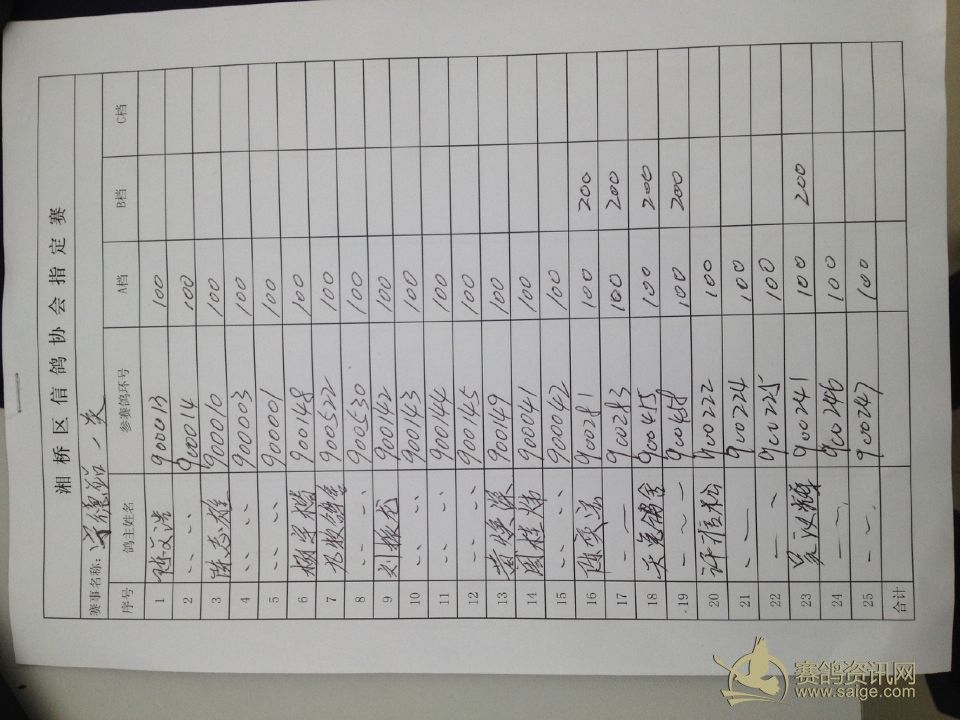 湘桥区信鸽协会指定赛
赛事名称:
序号 鸽主姓名 参赛鸽环号 A档 B档 C档
1 陈文浩 900013 100
2 900014 100
3 陈志雄 900010 100
4 900003 100
5 900001 100
6 900148 100
7 900522 100
8 900530 100
9 刘振龙 900142 100
10 900143 100
11 900144 100
12 900145 100
13 黄焕深 900149 100
14 900041 100
15 900042 100
16 900281 100 200
17 900283 100 200
18 900415 100 200
19 900458 100 200
20 900222 100
21 900224 100
22 900225 100
23 900241 100 200
24 900246 100
25 900247 100
合计
赛鸽资讯网
www.saige.com